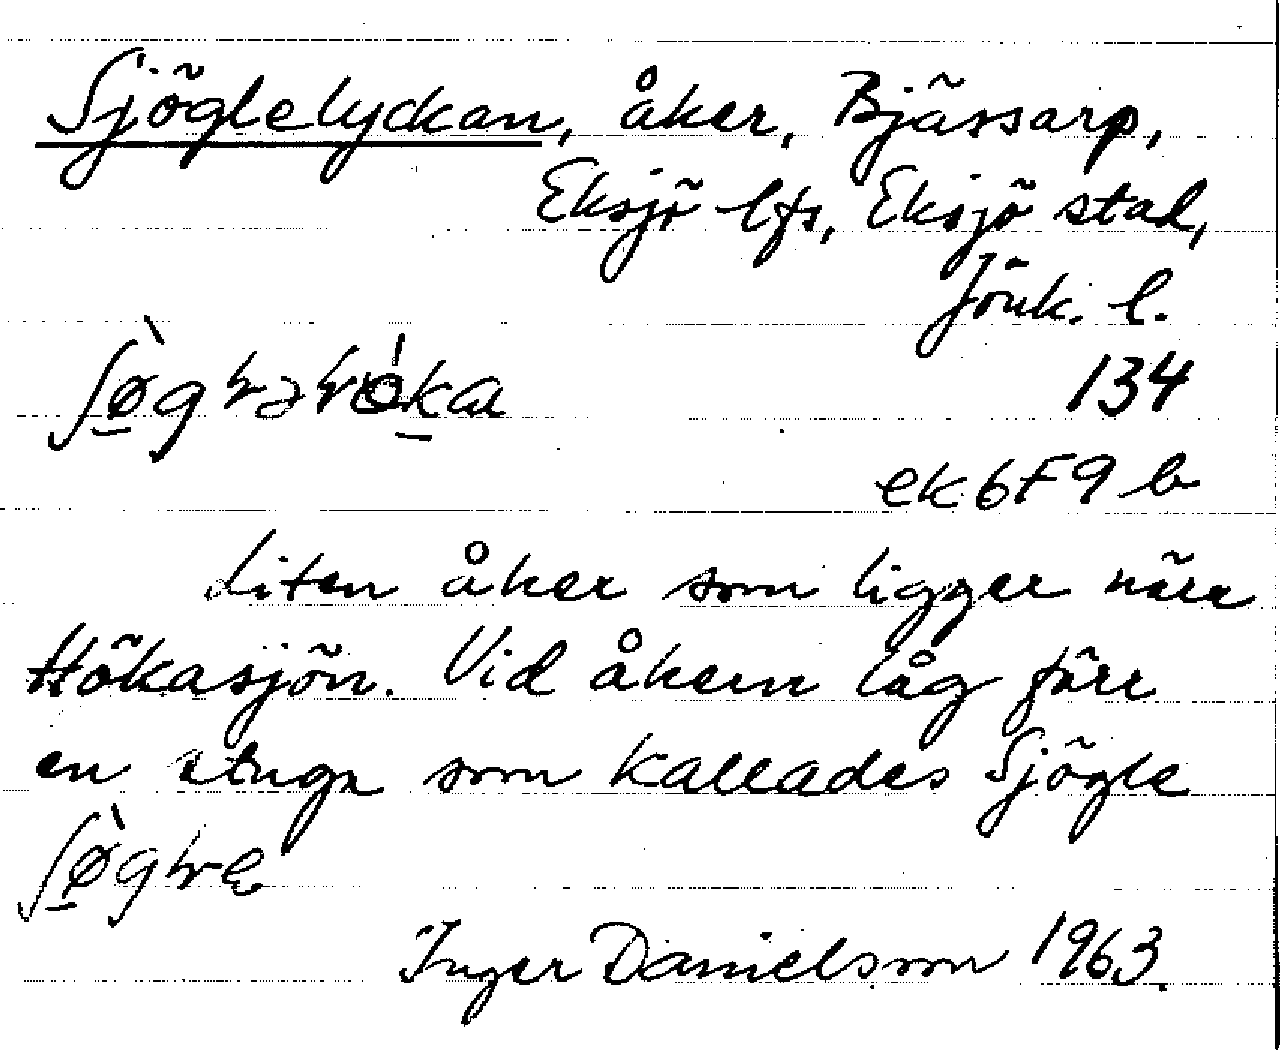 Sjöglelyckan, åker, Bjässarp,
Eksjö lfs, Eksjö stad,
Jönk. l.
134
ek 6F9 b
Liten åker som ligger nära
Hökasjön. Vid åkern låg förr
en stuga som kallades Sjögle
Inger Danielsson 1963.